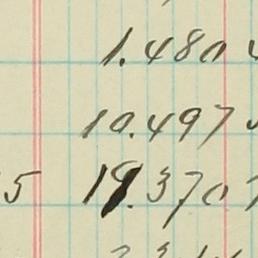 1.480
10.497
5 19.370